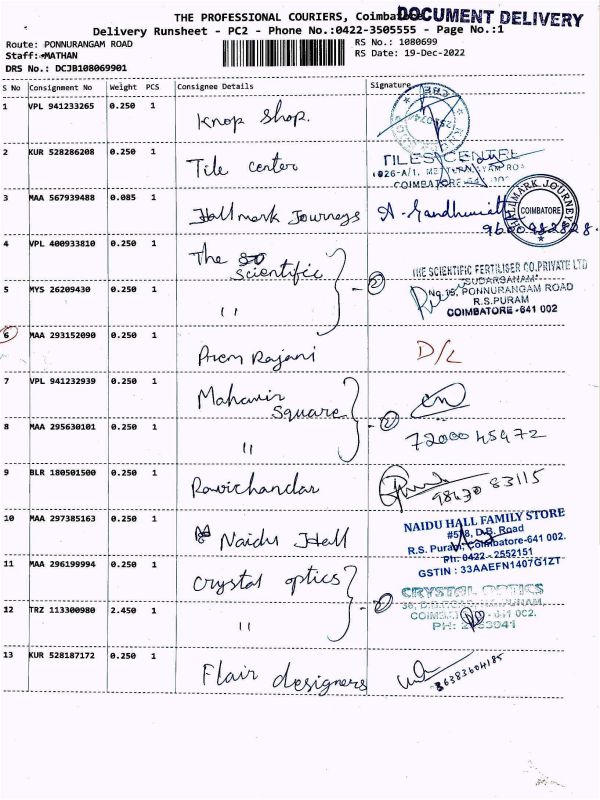 THE PROFESSIONAL COURIERS, Coimbatore
DOCUMENT DELIVERY
Delivery Runsheet - PC2 - Phone No.:0422-3505555 - Page No.:1
Route: PONNURANGAM ROAD
RS No.: 1080699
Staff: MATHAN
RS Date: 19-Dec-2022
DRS No.: DCJB108069901
S No Consignment No Weight PCS Consignee Details Signature
1 VPL 941233265 0.250 1 Knop Shop.
2 KUR 528286208 0.250 1 Tile center TILES CENTRE
COIMBATORE
3 MAA 567939488 0.085 1 Hallmark Journeys
HALLMARK JOURNEYS COIMBATORE
4 VPL 400933810 0.250 1 The scientific
THE SCIENTIFIC FERTILISER CO.PRIVATE LTD
"SUDARSANAM"
5 MYS 26209430 0.250 1 " No.15, PONNURANGAM ROAD
R.S.PURAM
COIMBATORE-641 002
6 MAA 293152090 0.250 1 Prem Rajani D/L
7 VPL 941232939 0.250 1 Mahavir Square
8 MAA 295630101 0.250 1 " 72000 45972
9 BLR 180501500 0.250 1 Ravichandar 98430 83115
10 MAA 297385163 0.250 1 Naidu Hall
NAIDU HALL FAMILY STORE
#578, D.B. Road
R.S. Puram, Coimbatore-641 002.
Ph: 0422-2552151
GSTIN : 33AAEFN1407G1ZT
11 MAA 296199994 0.250 1 Crystal optics
CRYSTAL OPTICS
12 TRZ 113300980 2.450 1 "
13 KUR 528187172 0.250 1 Flair designers